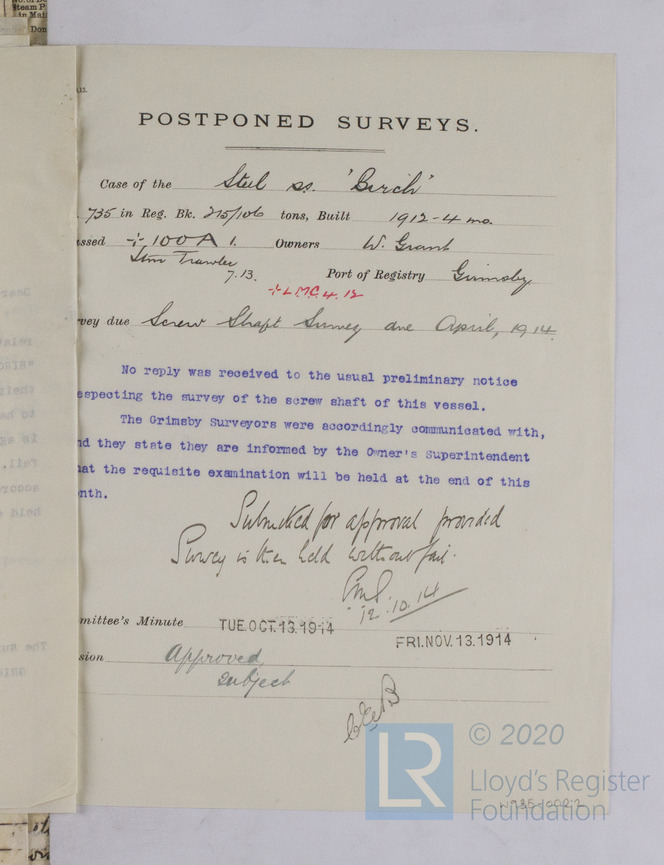 POSTPONED SURVEYS.
Case of the Steel ss. 'Birch'
735 in Reg. Bk. 215/106 tons, Built 1912-4 mo.
ssed +100A1. Owners W. Grant
Stm Trawler
7.13. Port of Registry Grimsby
+LMC 4.12
vey due Screw Shaft Survey due April, 1914.
No reply was received to the usual preliminary notice
especting the survey of the screw shaft of this vessel.
The Grimsby Surveyors were accordingly communicated with,
nd they state they are informed by the Owner's Superintendent
hat the requisite examination will be held at the end of this
nth.
Submitted for approval provided
Survey is then held without fail.
12.10.14
mittee's Minute TUE.OCT.13.1914
FRI.NOV.13.1914
sion Approved
subject
LR
© 2020
Lloyd's Register
Foundation